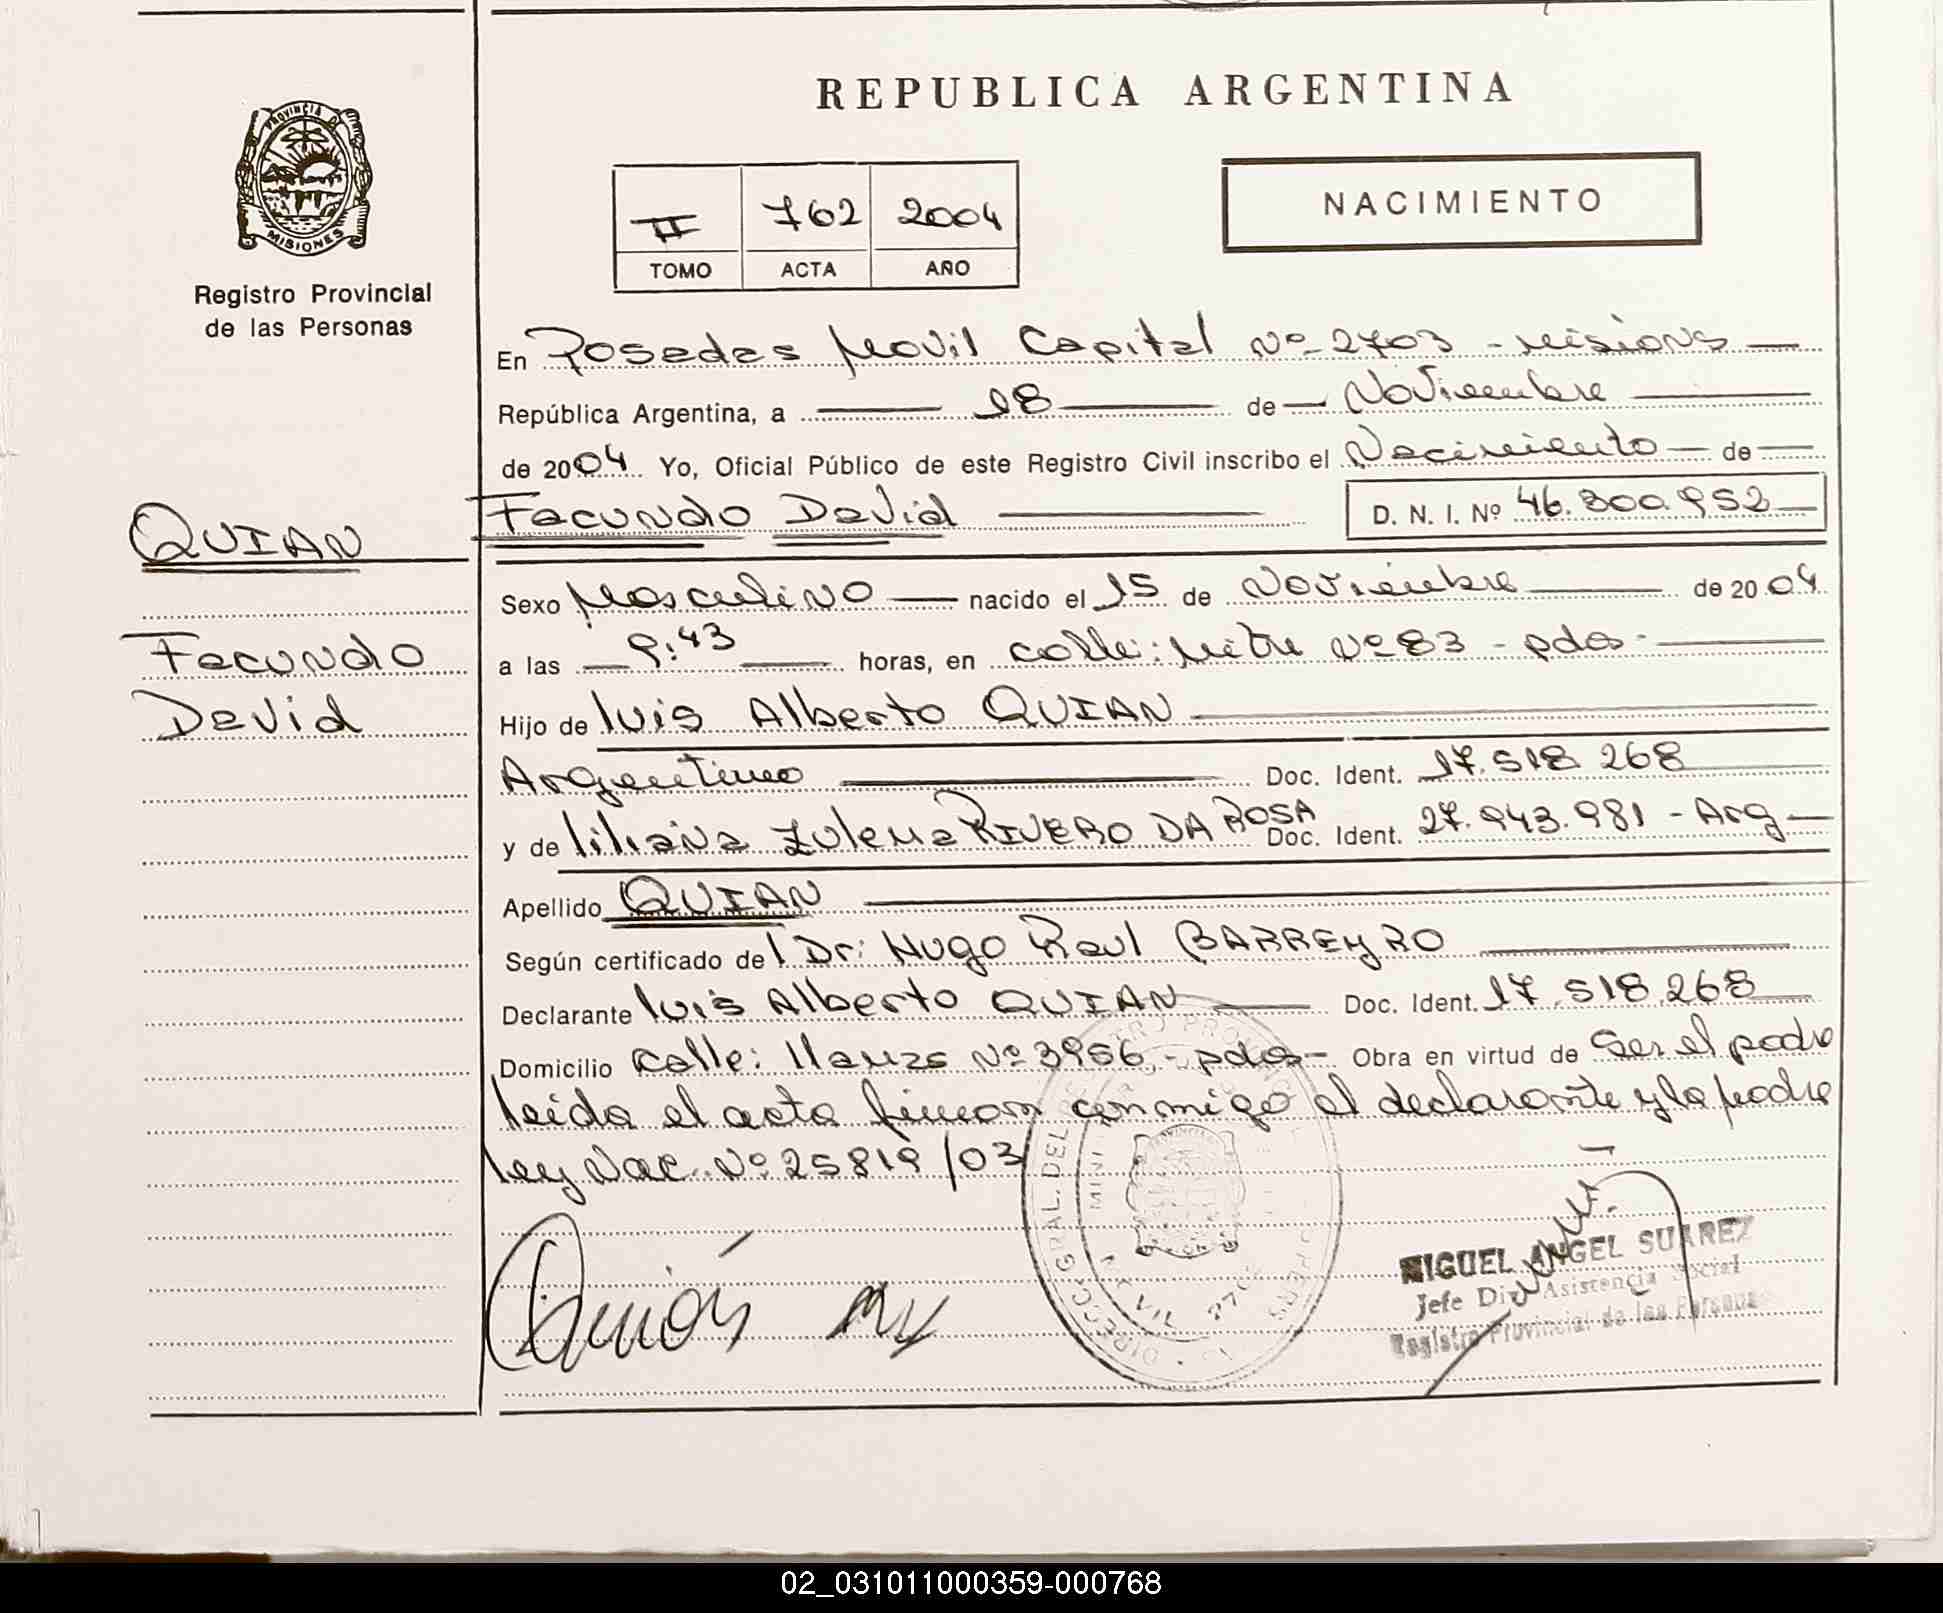 REPUBLICA ARGENTINA
PROVINCIA DE
MISIONES
Registro Provincial
de las Personas
II 762 2004
TOMO ACTA AÑO
NACIMIENTO
En Posadas Movil Capital Nº 2703 - Misiones
República Argentina, a 18 de Noviembre
de 2004 Yo, Oficial Público de este Registro Civil inscribo el Nacimiento de
QUIAN
Facundo David D. N. I. Nº 46.300.952
Sexo Masculino nacido el 15 de Noviembre de 2004
Facundo
a las 9:43 horas, en calle: Mitre Nº 83 - pdas.
David
Hijo de Luis Alberto QUIAN
Argentino Doc. Ident. 17.518.268
y de Liliana Zulema RIVERO DA ROSA Doc. Ident. 27.943.981 - Arg
Apellido QUIAN
Según certificado del Dr: Hugo Raul BARREYRO
Declarante Luis Alberto QUIAN Doc. Ident. 17.518.268
Domicilio calle: Nº 3956 - pdas - Obra en virtud de Ser el padre
leida el acta firman conmigo el declarante y la madre
ley Nac. Nº 25819/03
MIGUEL ANGEL SUAREZ
Jefe Div. Asistencia Social
Registro Provincial de las Personas
02_031011000359-000768